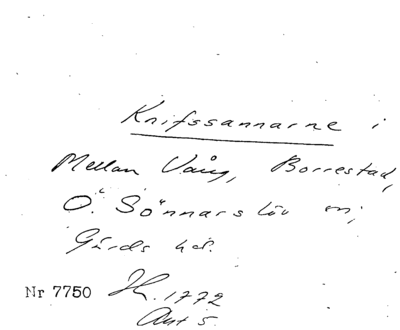 Knifssannarne i
Mellan Vång, Borrestad,
Ö. Sönnarslöv sn,
Gärds hd.
Nr 7750 Jh. 1772
Akt 5.